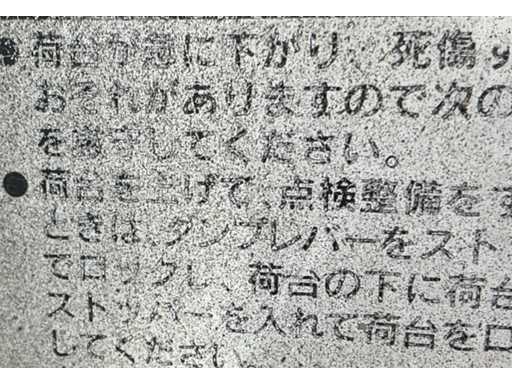 ●荷台が急に下がり、死傷
おそれがありますので次の
を遵守してください。
●荷台を上げて、点検整備をす
ときは、ダンプレバーをスト
でロックし、荷台の下に荷台
ストッパーを入れて荷台をロ
してください。